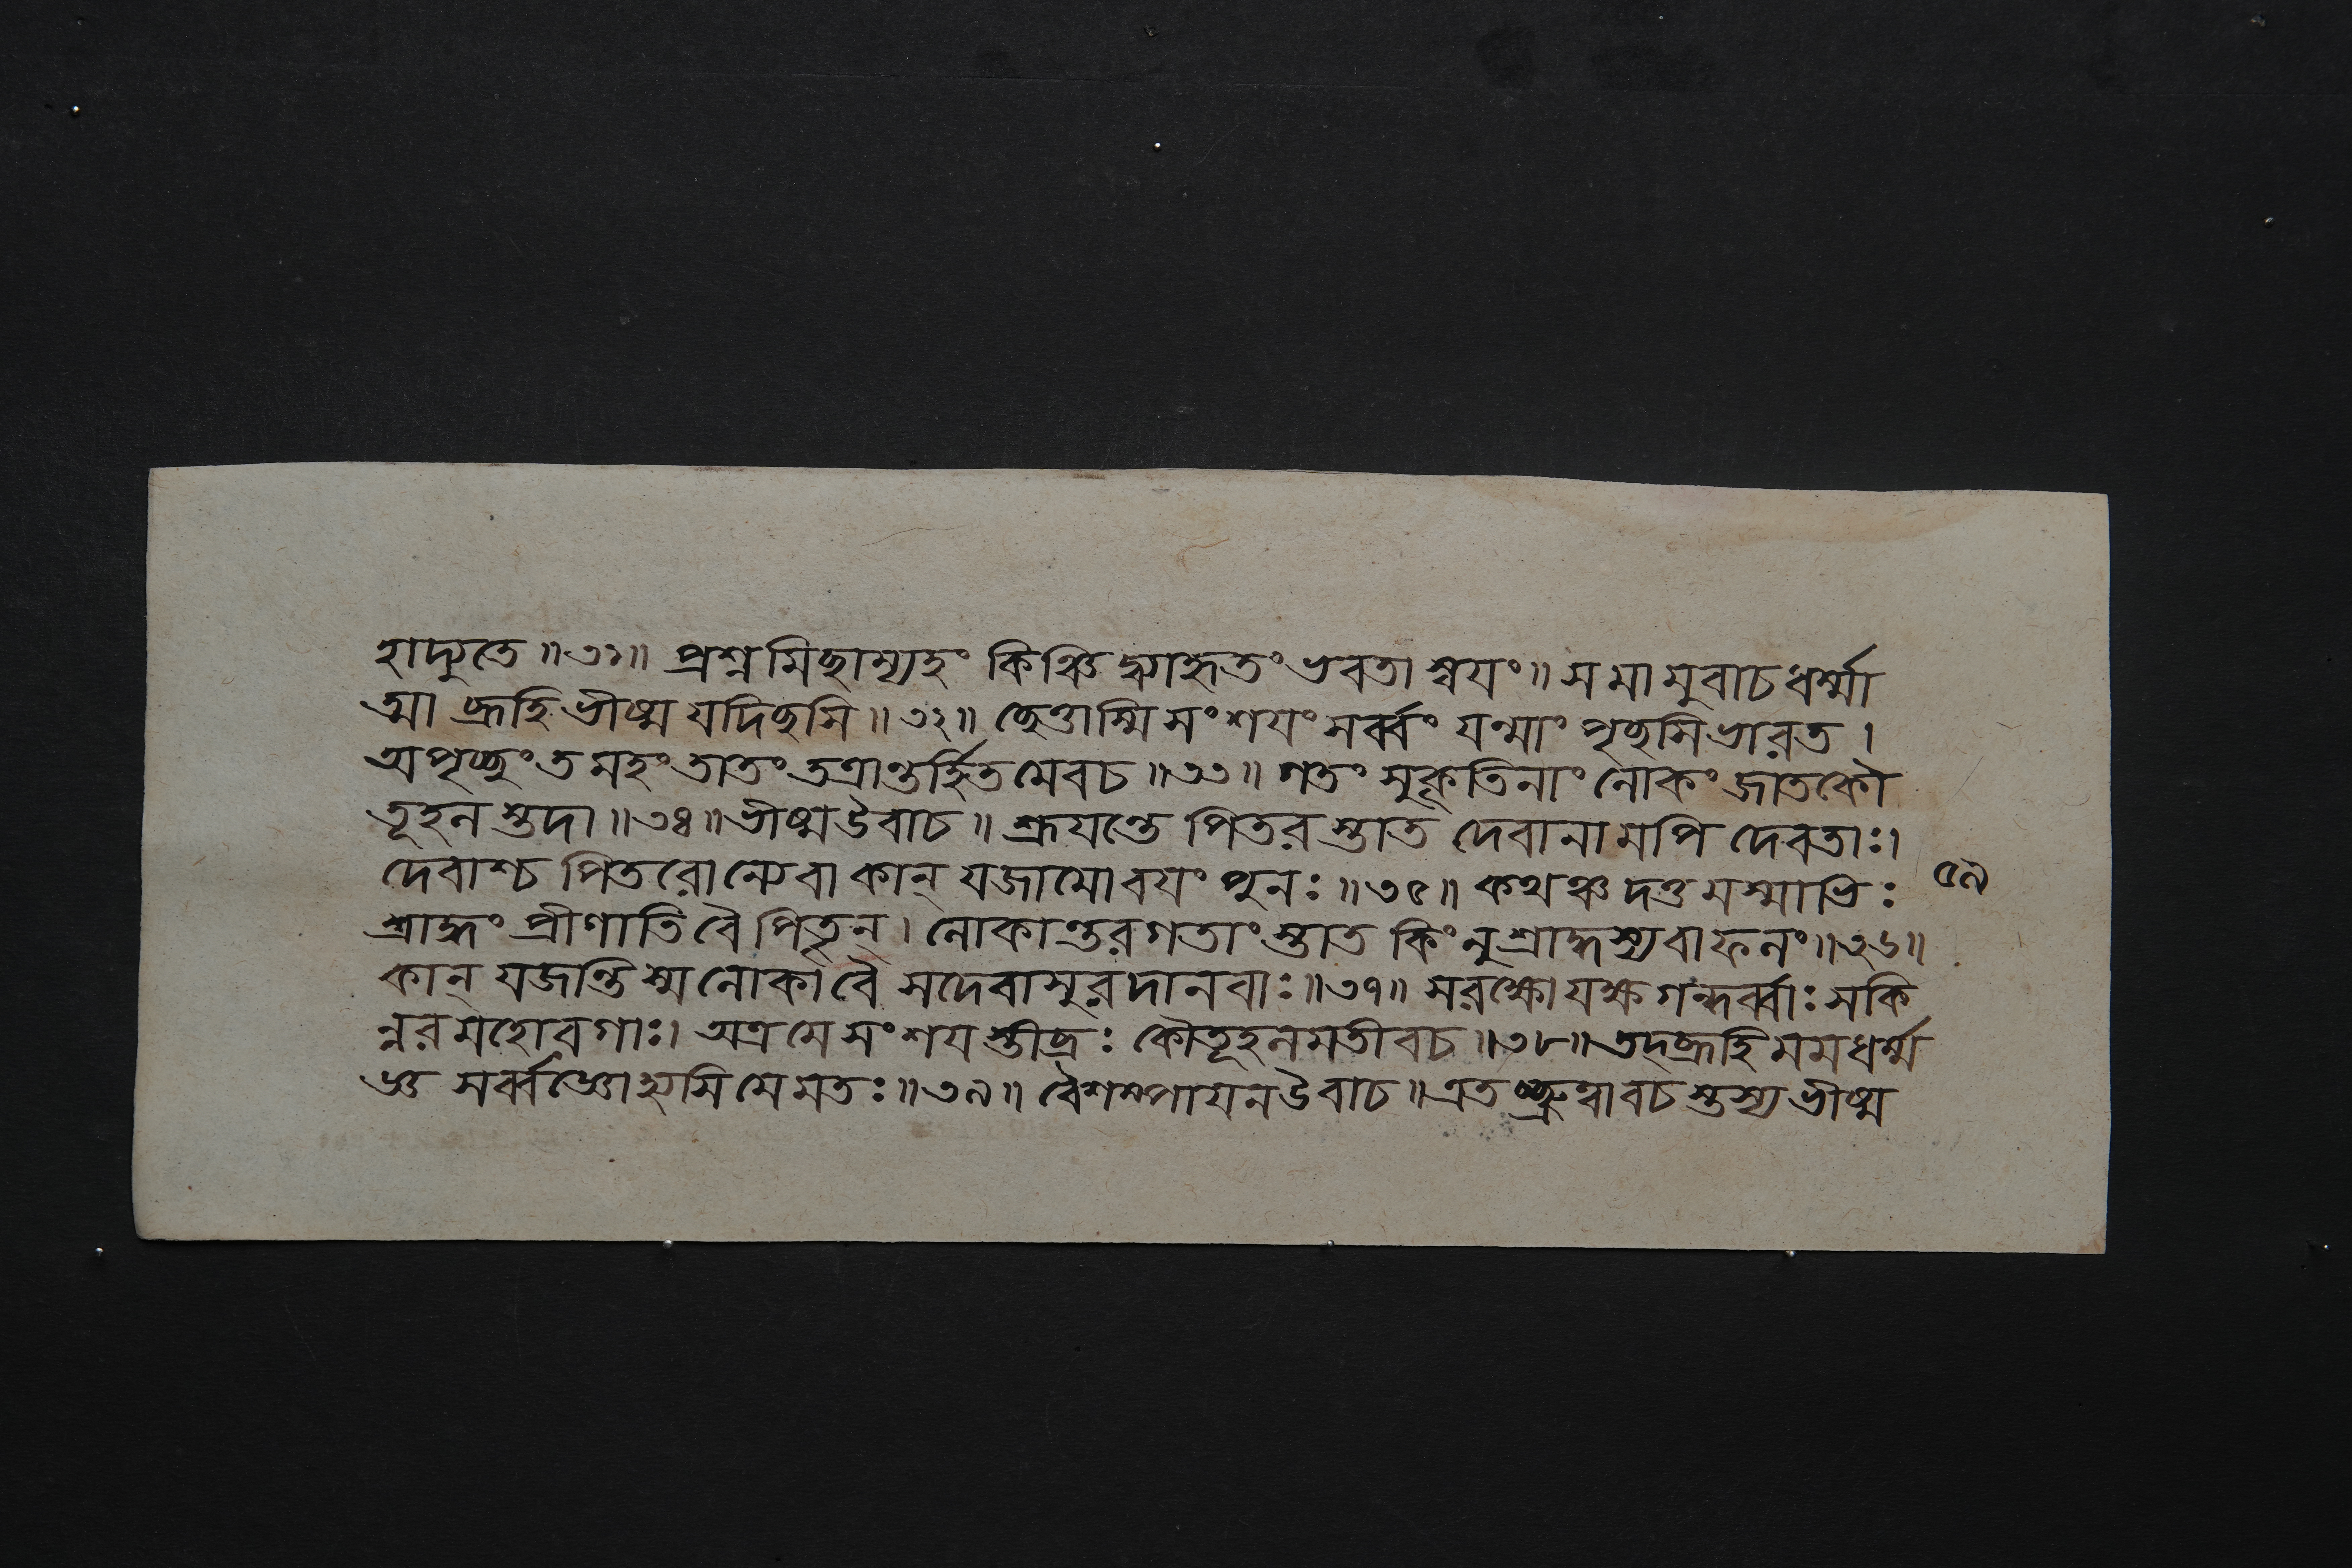 হাদ্যুতে ॥৩১॥ প্রশ্নমিছাম্যহং কিঞ্চিদ্ব্যাহৃতং ভবতা স্বযং॥ স মামুবাচ ধর্ম্মা
ত্মা ব্রূহি ভীষ্ম যদিছসি ॥৩২॥ ছেত্তাস্মি সংশযং সর্ব্বং যন্মাং পৃছসি ভারত ।
অপৃছ্ছং তমহং তাতং তত্রান্তর্হিতমেব চ ॥৩৩॥ গতং সুকৃতিনাং লোকং জাতকৌ
তূহলস্তদা ॥৩৪॥ ভীষ্ম উবাচ ॥ শ্রূযন্তে পিতরস্তাত দেবানামপি দেবতাঃ।
দেবাশ্চ পিতরোন্যে বা কান্ যজামো বযং পুনঃ ॥৩৫॥ কথঞ্চ দত্তমস্মাভিঃ ৫৯
শ্রাদ্ধং প্রীণাতি বৈ পিতৃন্। লোকান্তরগতাংস্তাত কিং নু শ্রাদ্ধস্য বা ফলং॥৩৬॥
কান্ যজন্তি স্ম লোকা বৈ সদেবাসুরদানবাঃ॥৩৭॥ সরক্ষোযক্ষগন্ধর্ব্বাঃ সকি
ন্নরমহোরগাঃ। অত্র মে সংশযস্তীব্রঃ কৌতূহলমতীব চ ॥৩৮॥ তদ্ব্রূহি মম ধর্ম্ম
জ্ঞ সর্ব্বজ্ঞো হ্যসি মে মতঃ॥৩৯॥ বৈশম্পাযন উবাচ ॥ এতচ্ছ্রুত্বা বচস্তস্য ভীষ্ম